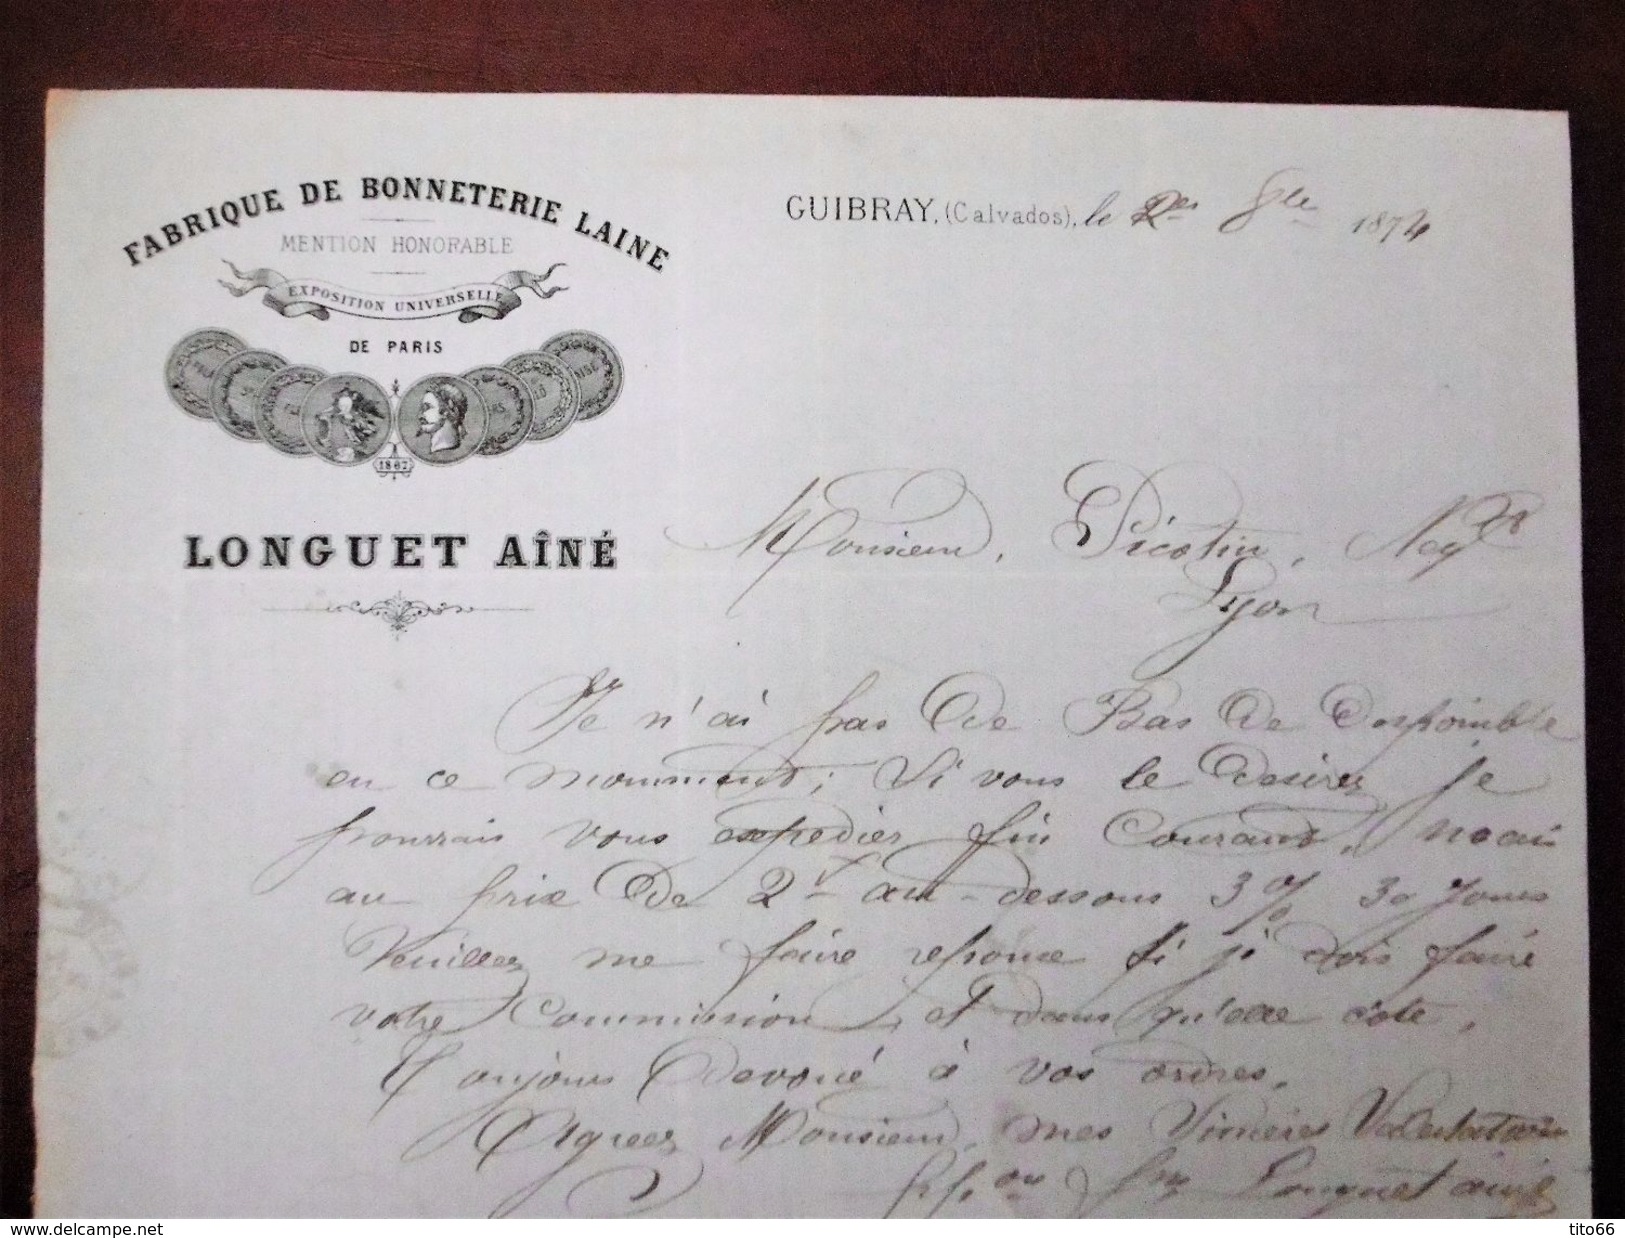 FABRIQUE DE BONNETERIE LAINE
MENTION HONORABLE
EXPOSITION UNIVERSELLE
DE PARIS
1867
LONGUET AÎNÉ
GUIBRAY, (Calvados), le 8bre 1874
Monsieur Picotin, Negt
Lyon
Je n'ai pas de Bas de disponible
en ce moumment; Si vous le desirez je
pourrais vous expedier fin Courant,
au prix de 2f au-dessous 3% 30 jours
Veuillez me faire reponse si je dois faire
votre Commission, et dans qu'elle côte,
Toujours devoué à vos ordres,
Agreez Monsieur, mes Sinsères Salutations
Longuet ainé
delcampe.net
tito66